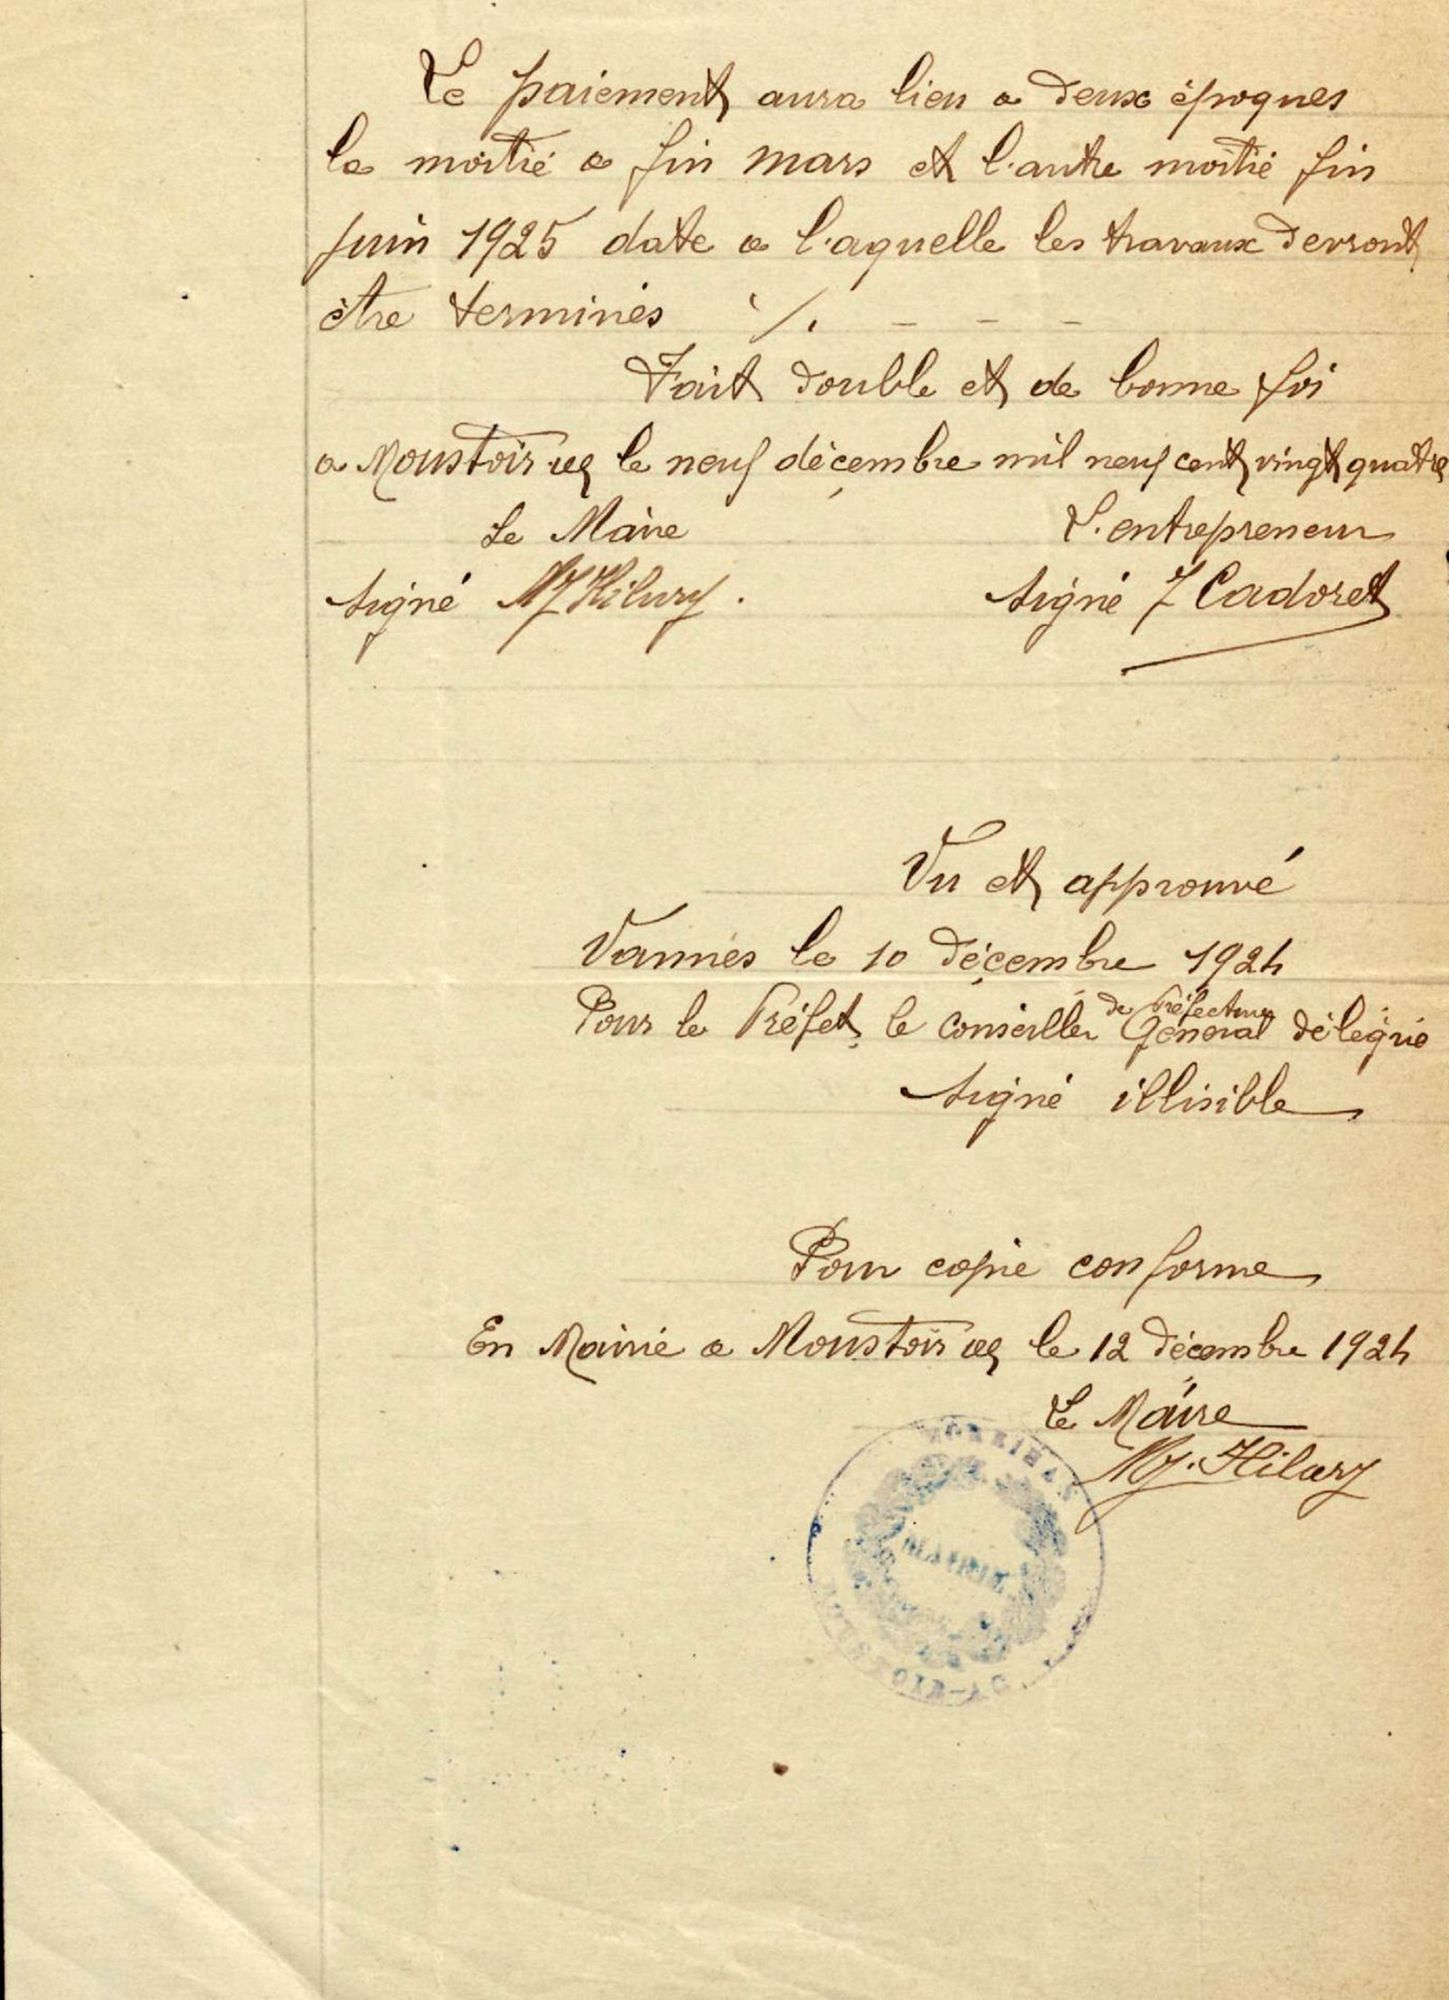 Le paiement aura lieu a deux époques
la moitié a fin mars et l'autre moitié fin
juin 1925 date a l'aquelle les travaux devront
être terminés ·/.  -  -  -
Fait double et de bonne foi
a Moustoir ac le neuf décembre mil neuf cent vingt quatre
Le Maire L'entrepreneur
signé MJ Hilary. signé J Cadoret
Vu et approuvé
Vannes le 10 décembre 1924
de Préfecture
Pour le Préfet, le conseiller Général délégué
signé illisible
Pour copie conforme
En Mairie a Moustoir ac le 12 décembre 1924
Le Maire
MJ. Hilary
MORBIHAN
MAIRIE
MOUSTOIR-AC